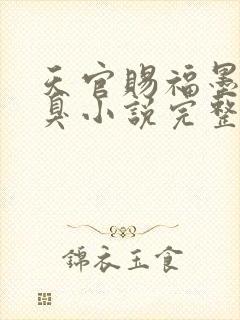 天官賜福墨
臭小說完整
錦衣玉食